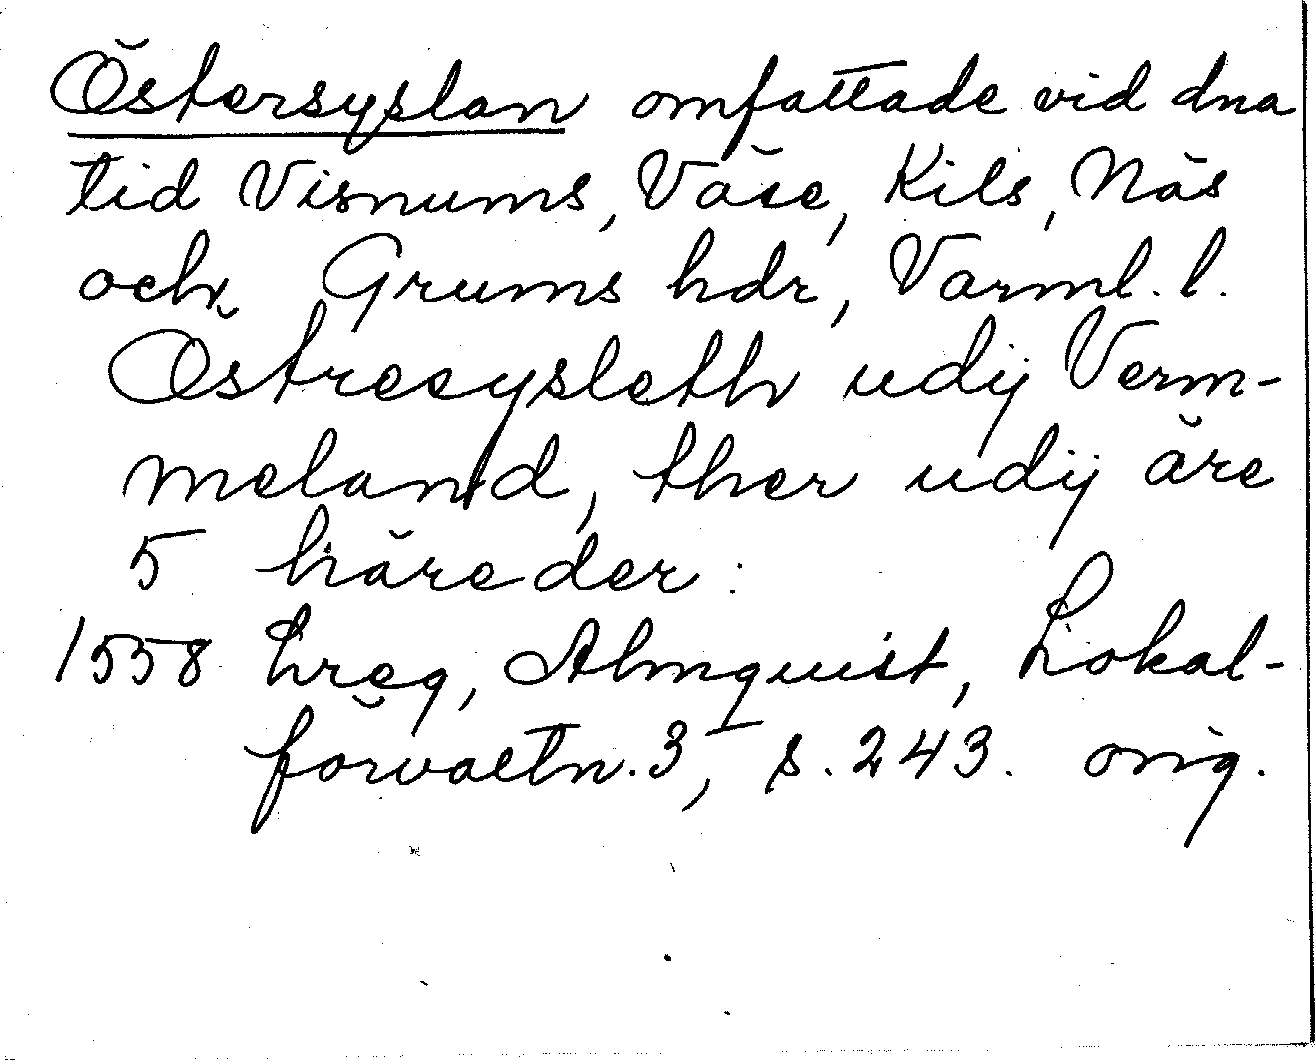 Östersyslan omfattade vid dna
tid Visnums, Väse, Kils, Näs
och Grums hdr, Värml. l.
Östresysleth udij Verm-
meland, ther udij äre
5 häreder:
1558 hreg, Almquist, Lokal-
förvaltn. 3, s. 243. orig.